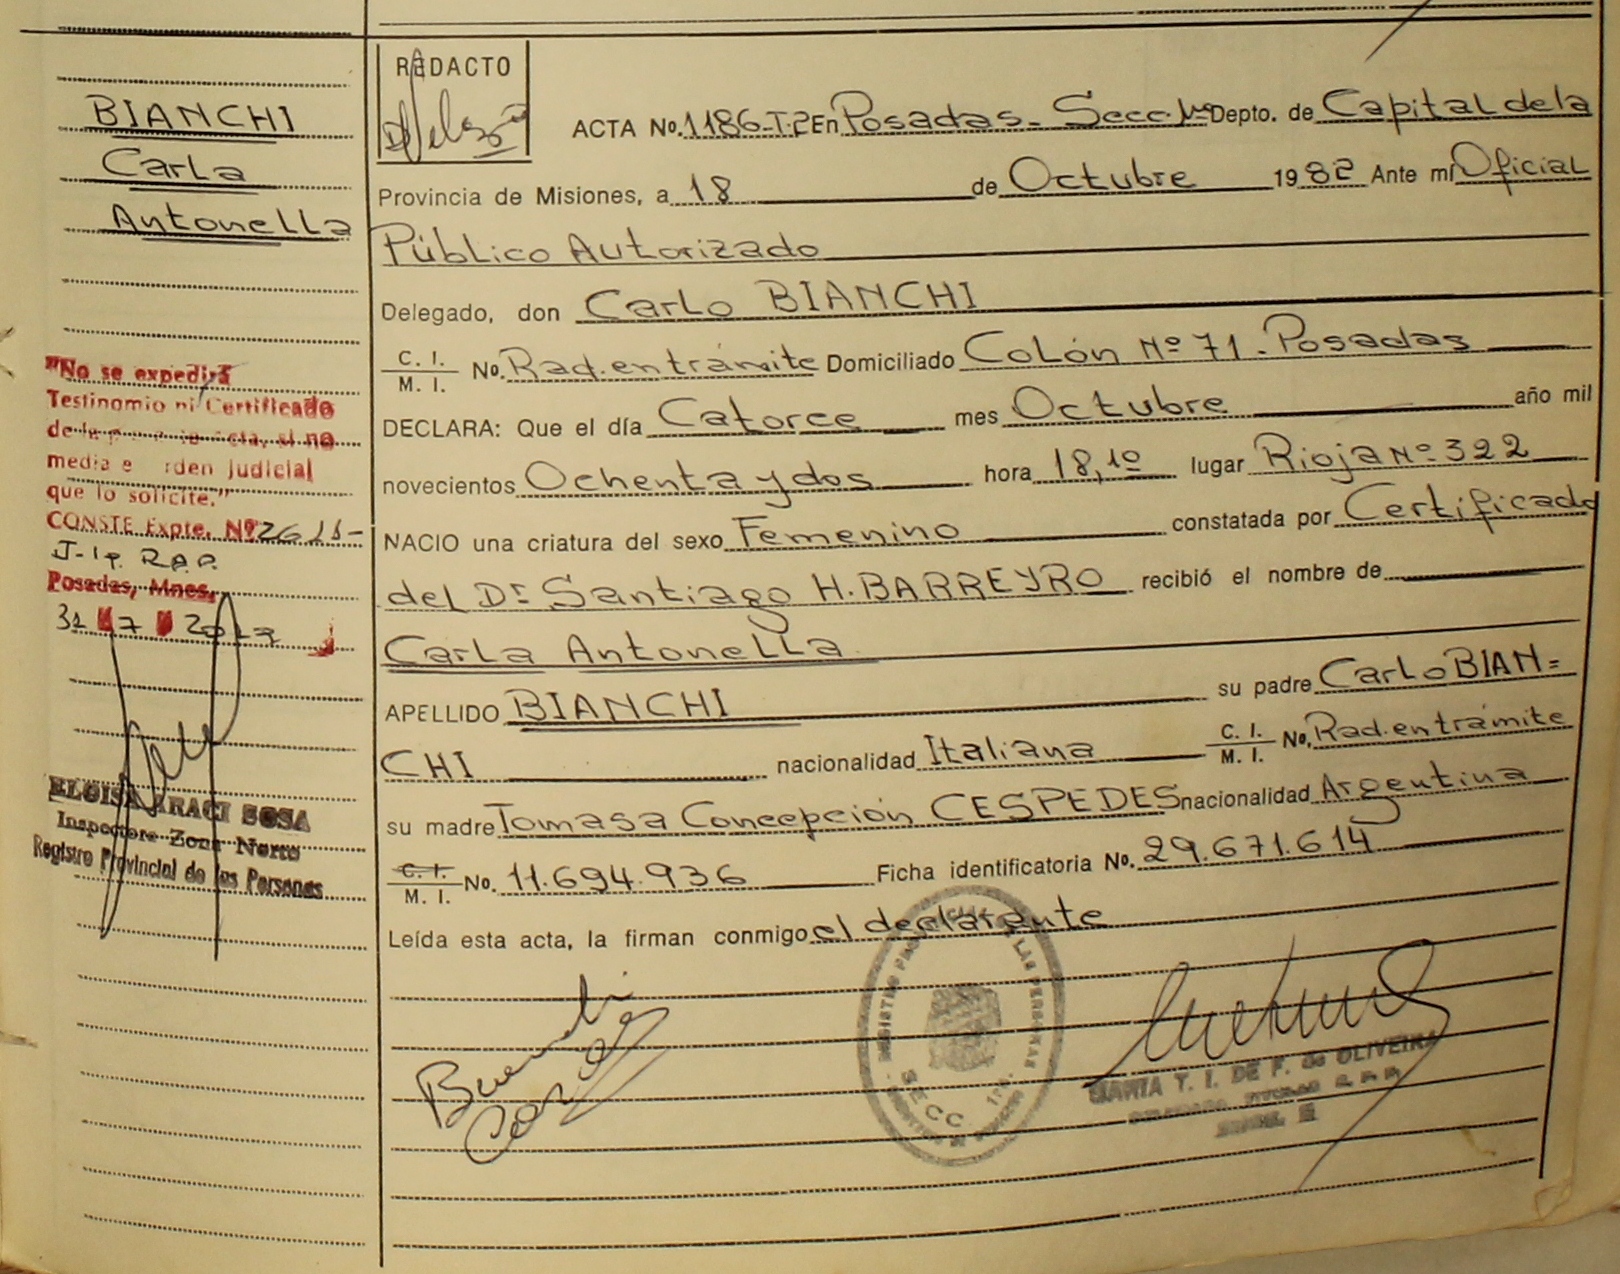 BIANCHI
Carla
Antonella
"No se expedirá
Testimonio ni Certificado
de la acta, si no
media orden judicial
que lo solicite."
CONSTE Expte. Nº
Posadas, Mnes,
31 7
ELOISA ARACI SOSA
Inspectora Zona Norte
Registro Provincial de las Personas
REDACTO
ACTA No. 1186-T.2 En Posadas - Secc. 1ra Depto. de Capital de la
Provincia de Misiones, a 18 de Octubre 1982 Ante mí Oficial
Público Autorizado
Delegado, don Carlo BIANCHI
C. I.
M. I. No. Rad. en trámite Domiciliado Colón Nº 71 - Posadas
DECLARA: Que el día Catorce mes Octubre año mil
novecientos Ochenta y dos hora 18,10 lugar Rioja Nº 322
NACIO una criatura del sexo Femenino constatada por Certificado
del Dr Santiago H. BARREYRO recibió el nombre de
Carla Antonella
APELLIDO BIANCHI su padre Carlo BIAN=
CHI nacionalidad Italiana C. I.
M. I. No. Rad. en trámite
su madre Tomasa Concepción CESPEDES nacionalidad Argentina
C. I.
M. I. No. 11.694.936 Ficha identificatoria No. 29.671.614
Leída esta acta, la firman conmigo el declarante
REGISTRO PROVINCIAL DE LAS PERSONAS
SECC. 1ra.
MARIA T. I. DE F. de OLIVEIRA